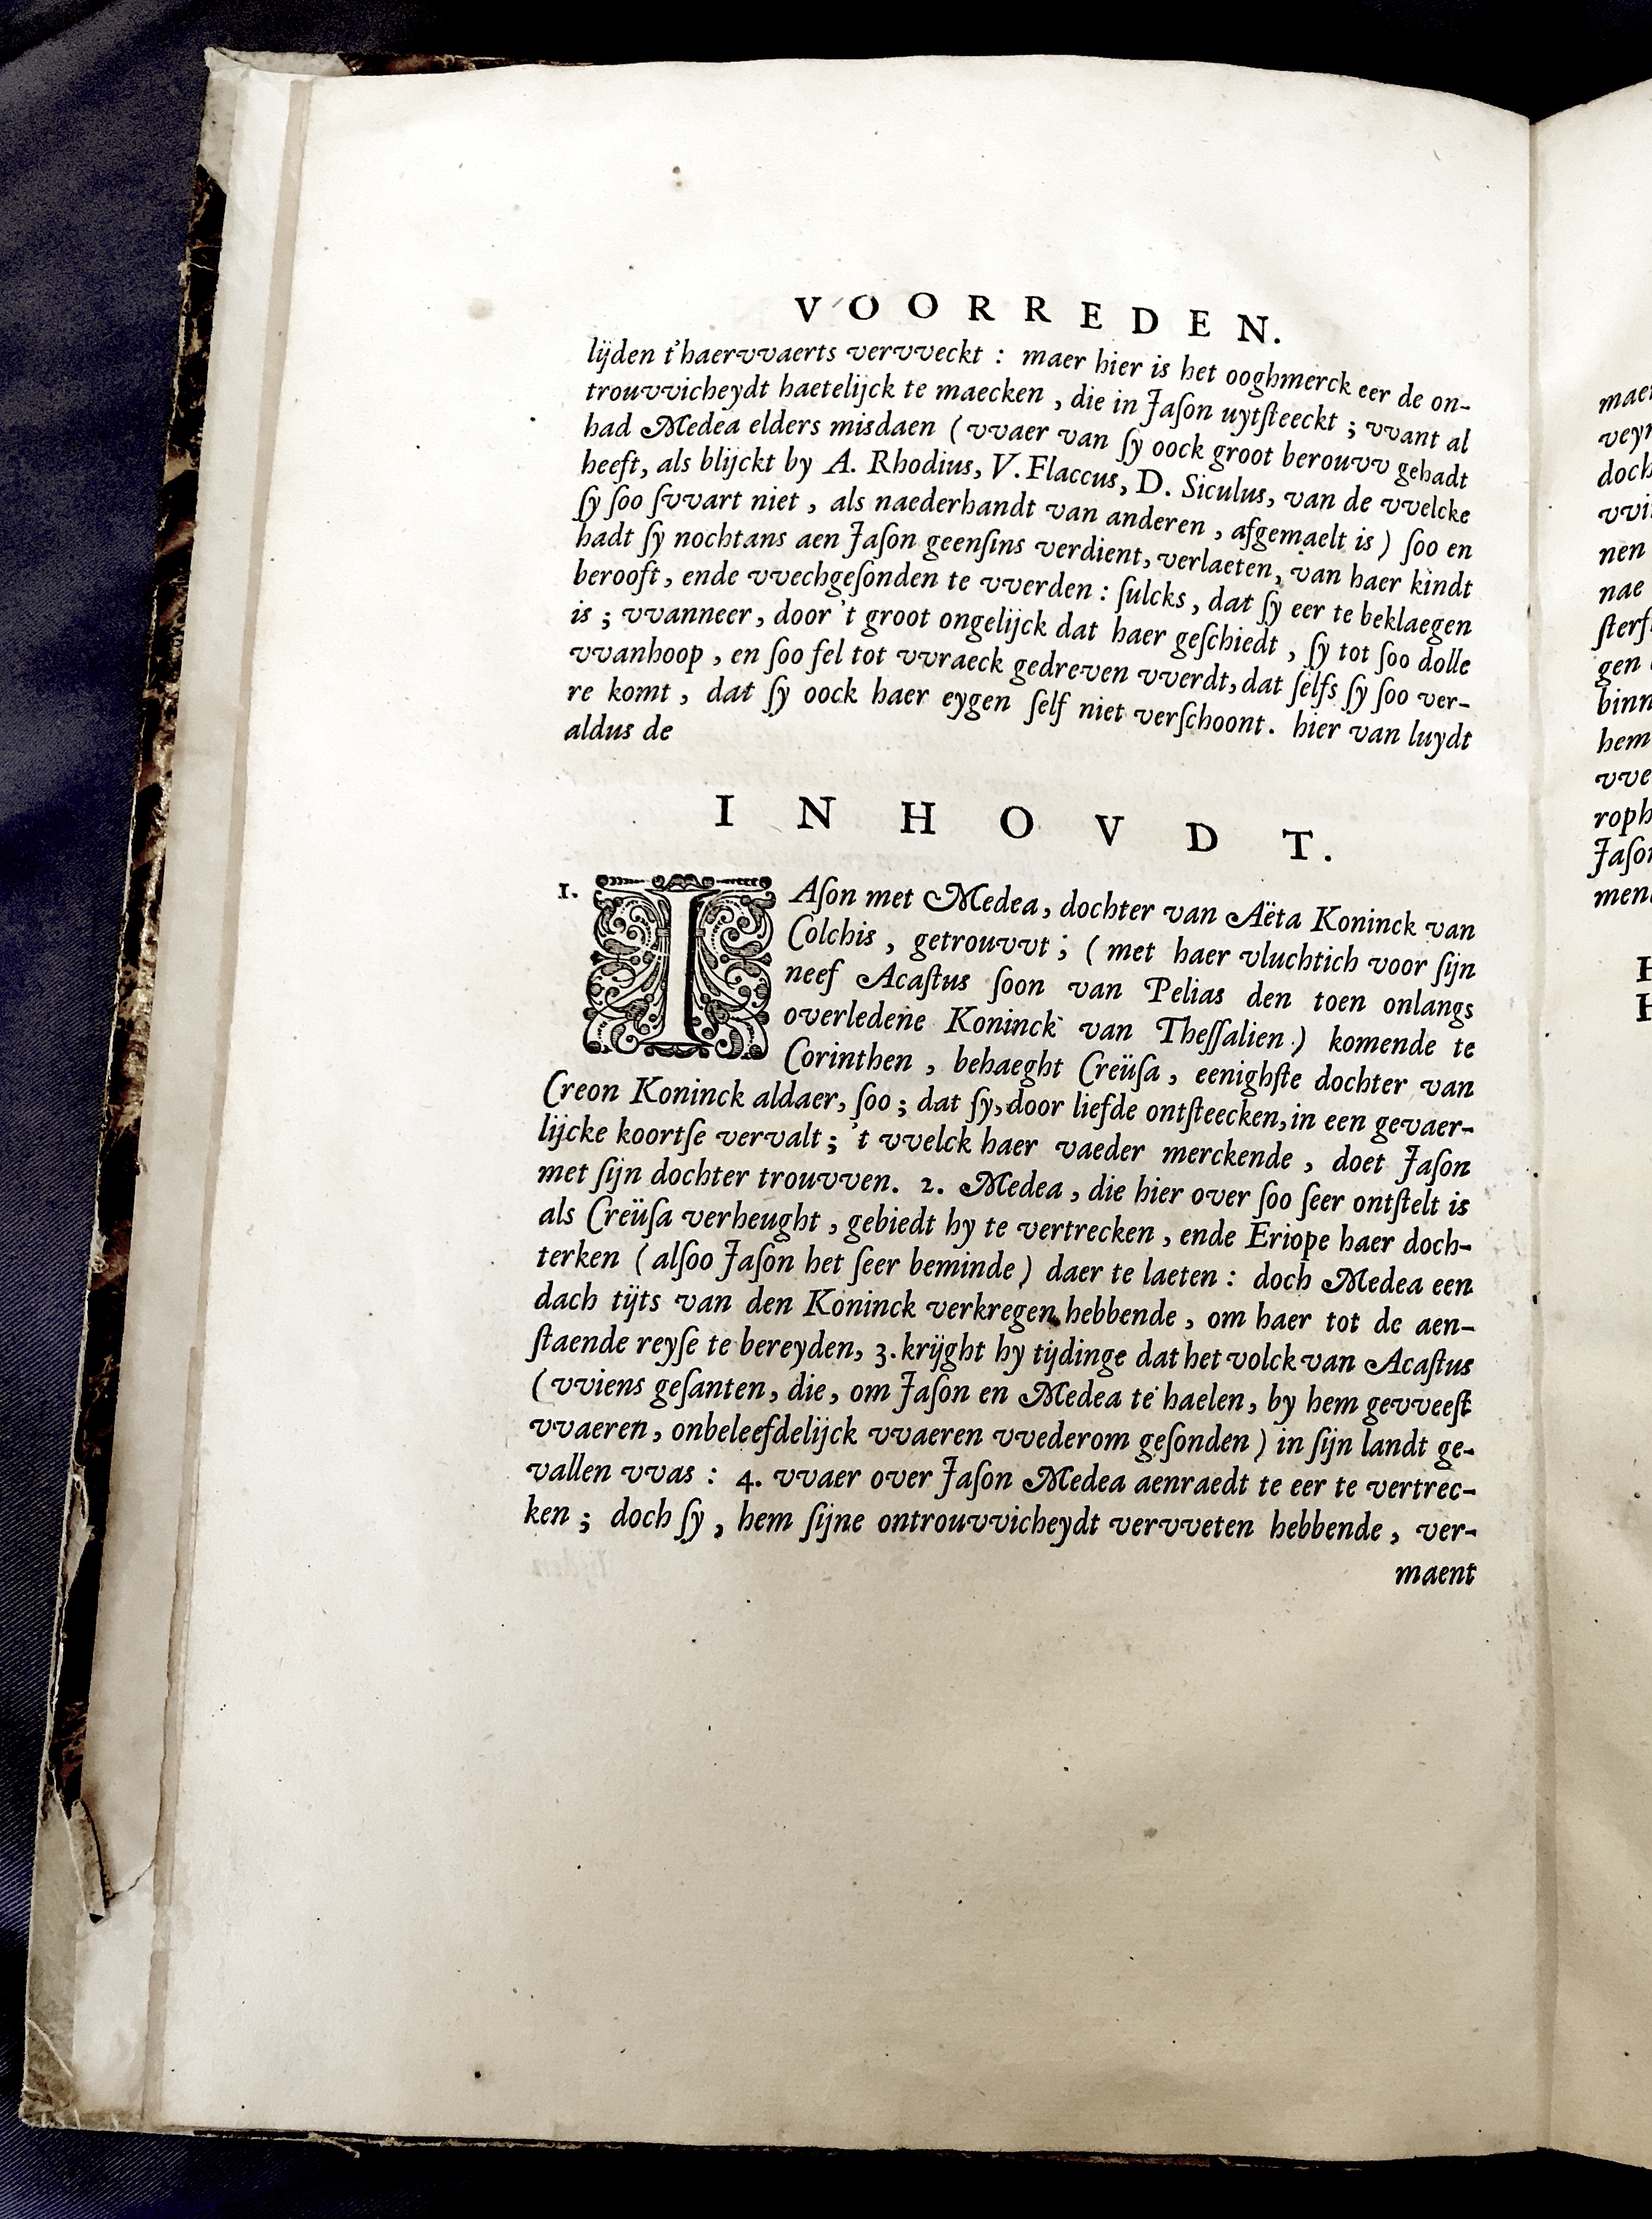 VOORREDEN.
lijden t'haervvaerts vervveckt : maer hier is het ooghmerck eer de on-
trouvvicheydt haetelijck te maecken , die in Jaſon uytſteeckt ; vvant al
had Medea elders misdaen ( vvaer van ſy oock groot berouvv gehadt
heeft, als blijckt by A. Rhodius, V. Flaccus, D. Siculus, van de vvelcke
ſy ſoo ſvvart niet , als naederhandt van anderen , afgemaelt is ) ſoo en
hadt ſy nochtans aen Jaſon geenſins verdient, verlaeten, van haer kindt
berooft, ende vvechgeſonden te vverden : ſulcks, dat ſy eer te beklaegen
is ; vvanneer, door 't groot ongelijck dat haer geſchiedt , ſy tot ſoo dolle
vvanhoop , en ſoo fel tot vvraeck gedreven vverdt, dat ſelfs ſy ſoo ver-
re komt , dat ſy oock haer eygen ſelf niet verſchoont. hier van luydt
aldus de
INHOVDT.
1. IAſon met Medea, dochter van Aëta Koninck van
Colchis , getrouvvt ; ( met haer vluchtich voor ſijn
neef Acaſtus ſoon van Pelias den toen onlangs
overledene Koninck van Theſſalien ) komende te
Corinthen , behaeght Creüſa , eenighſte dochter van
Creon Koninck aldaer, ſoo ; dat ſy, door liefde ontſteecken, in een gevaer-
lijcke koortſe vervalt ; 't vvelck haer vaeder merckende , doet Jaſon
met ſijn dochter trouvven. 2. Medea , die hier over ſoo ſeer ontſtelt is
als Creüſa verheught , gebiedt hy te vertrecken , ende Eriope haer doch-
terken ( alſoo Jaſon het ſeer beminde ) daer te laeten : doch Medea een
dach tijts van den Koninck verkregen hebbende , om haer tot de aen-
ſtaende reyſe te bereyden, 3. krijght hy tijdinge dat het volck van Acaſtus
( vviens geſanten, die, om Jaſon en Medea te haelen, by hem gevveeſt
vvaeren, onbeleefdelijck vvaeren vvederom geſonden ) in ſijn landt ge-
vallen vvas : 4. vvaer over Jaſon Medea aenraedt te eer te vertrec-
ken ; doch ſy , hem ſijne ontrouvvicheydt vervveten hebbende , ver-
maent
maer
doch
nen
nae
gen
binn
hem
vve
roph
Jaſon
men